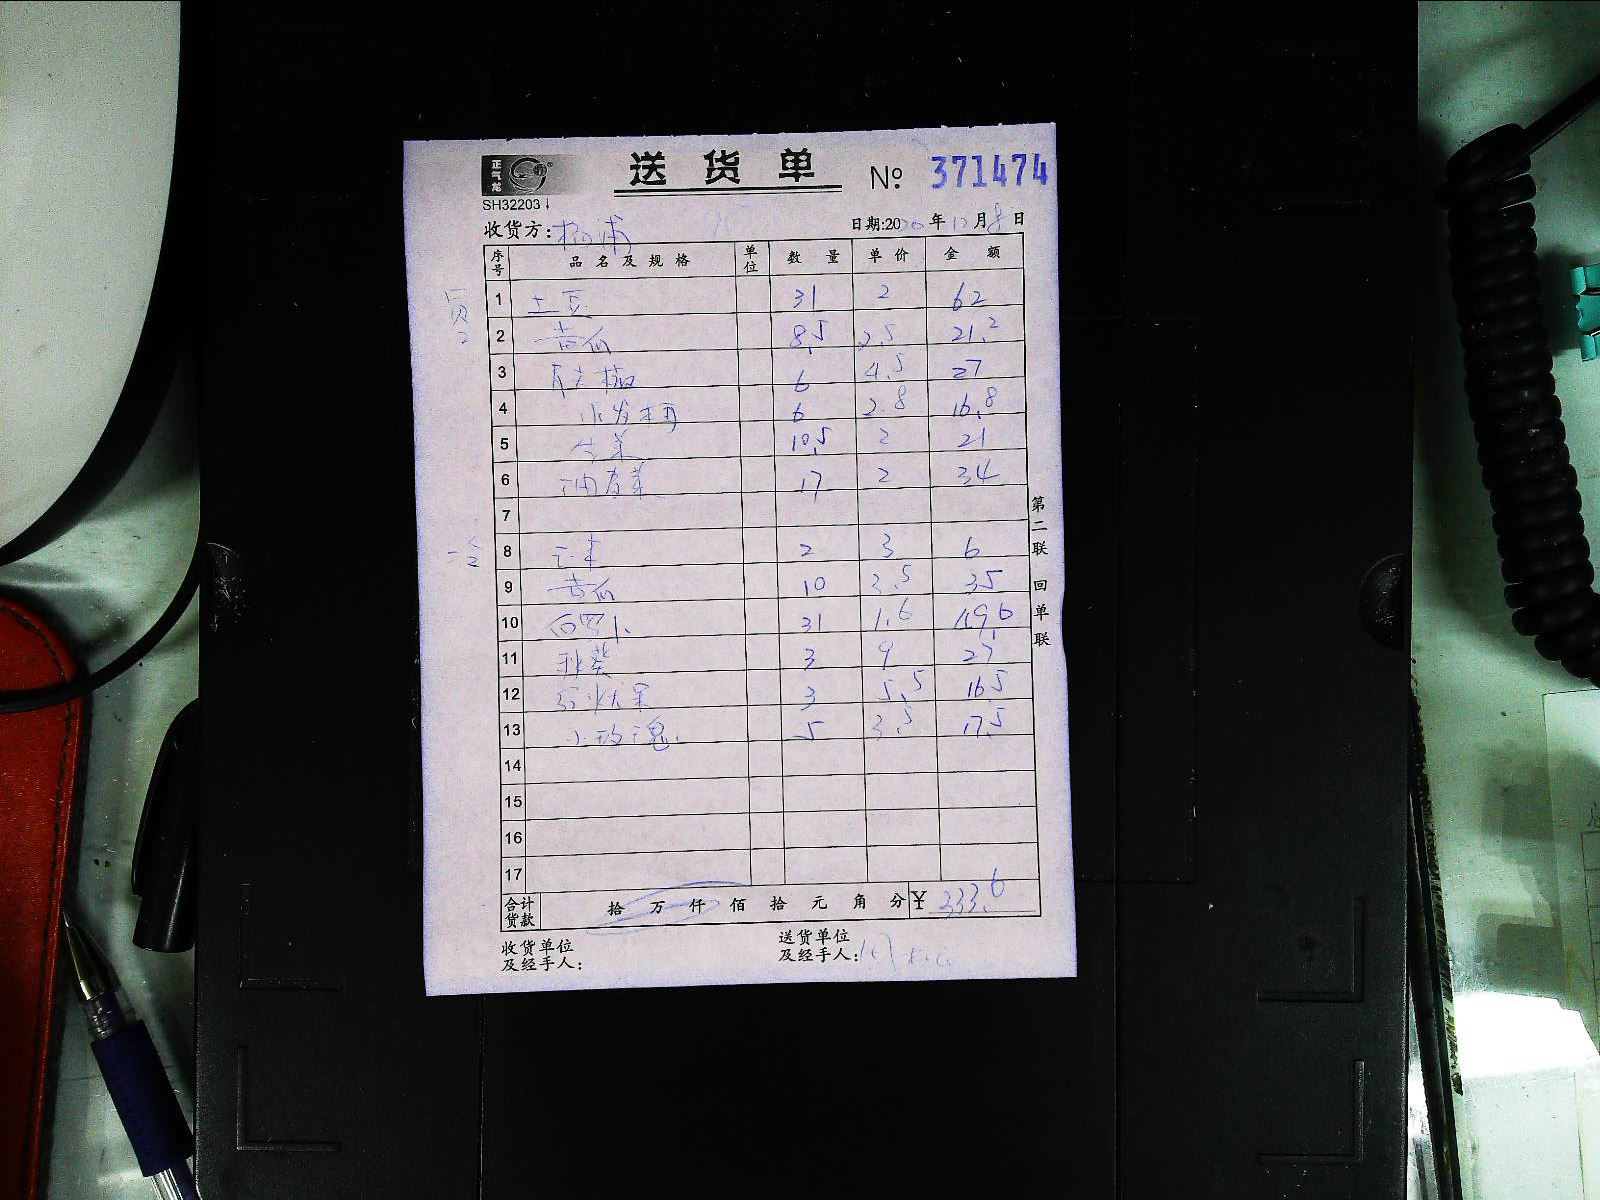 正气龙
SH32203
送货单 № 371474
收货方: 杨浦 日期:2020年12月8日
序号 品名及规格 单位 数量 单价 金额
1 土豆 31 2 62
2 黄瓜 8.5 2.5 21.2
3 6 4.5 27
4 6 2.8 16.8
5 10.5 2 21
6 油麦菜 17 2 34
7
8 玉米 2 3 6
9 黄瓜 10 3.5 35
10 白罗卜 31 1.6 49.6
11 秋葵 3 9 27
12 3 5.5 16.5
13 小玫瑰 5 3.5 17.5
14
15
16
17
合计货款 拾万仟佰拾元角分 ¥ 333.6
收货单位及经手人: 送货单位及经手人:
第二联 回单联